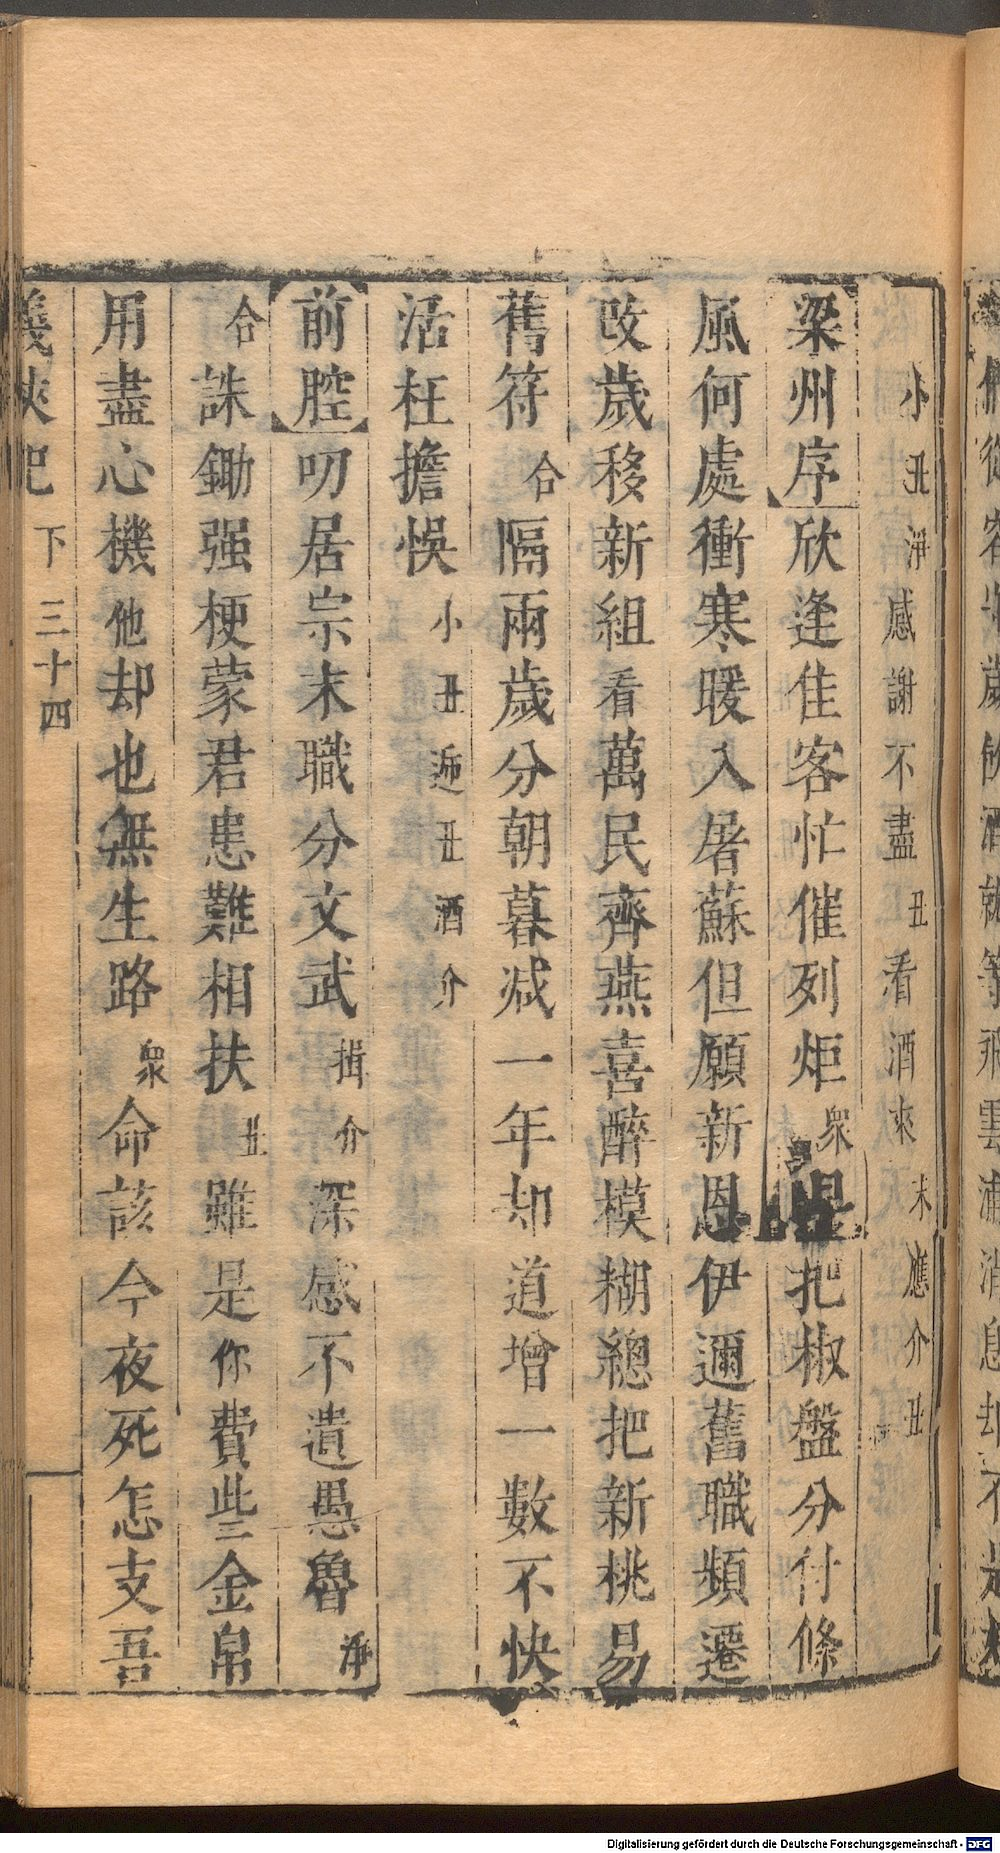 小丑淨感謝不盡丑看酒來末應介丑
梁州序欣逢佳客忙催列炬衆把椒盤分付條
風何處衝寒暖入屠蘇但願新恩伊邇舊職頻遷
改歲移新組看萬民齊燕喜醉模糊總把新桃易
舊符合隔兩歲分朝暮减一年却道增一數不快
活枉擔悞小丑遞丑酒介
前腔叨居宗末職分文武揖介深感不遺愚魯淨
合誅鋤强梗蒙君患難相扶丑雖是你費些金帛
用盡心機他却也無生路衆命該今夜死怎支吾
義俠記 下 三十四
Digitalisierung gefördert durch die Deutsche Forschungsgemeinschaft - DFG